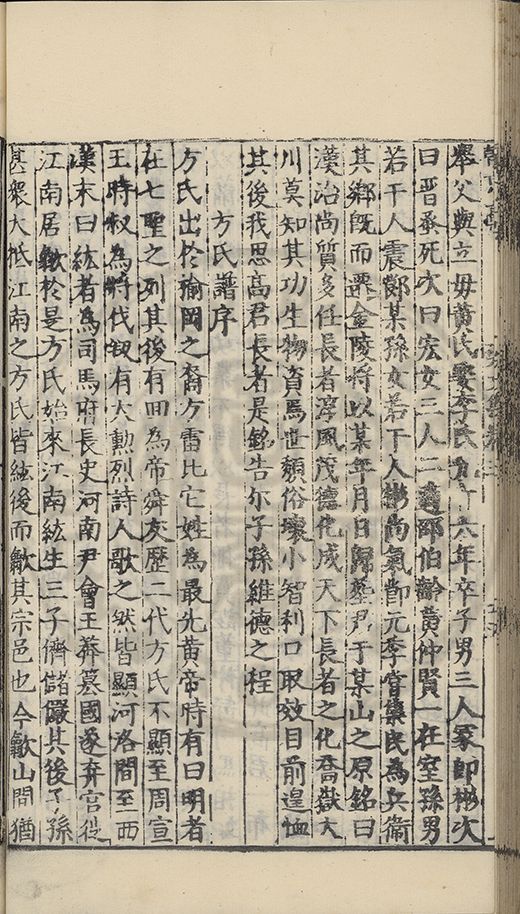 舉父與立母黃氏娶李氏九十六年卒子男三人冢即彬次
曰晉蚤死次曰宏女三人二適邵伯齡黃仲賢一在室孫男
若干人震鄭某孫女若干人彬尚氣節元季嘗集民為兵衛
其鄉既而遷金陵將以某年月日歸塟君于某山之原銘曰
漢治尚質多任長者淳風茂德化成天下長者之化喬嶽大
川莫知其功生物資焉世頹俗壞小智利口取效目前遑恤
其後我思高君長者是銘告尔子孫維德之程
方氏譜序
方氏出於瑜岡之裔方雷比它姓為最先黃帝時有曰明者
在七聖之列其後有回為帝舜友歷二代方氏不顯至周宣
王時叔為將代有大勳烈詩人歌之然皆顯河洛間至西
漢末曰紘者為司馬府長史河南尹會王莽篡國遂弃官徙
江南居歙於是方氏始來江南紘生三子儕儲儼其後子孫
甚衆大抵江南之方氏皆紘後而歙其宗邑也今歙山間猶